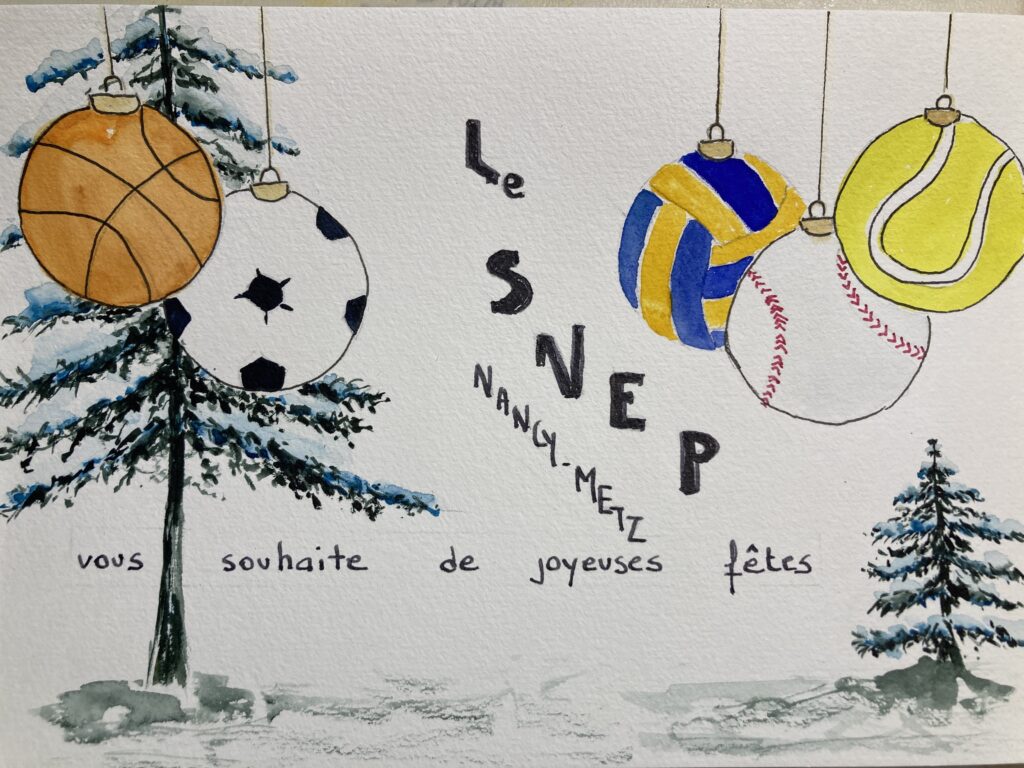 Le
SNEP
NANCY-METZ
vous souhaite de joyeuses fêtes